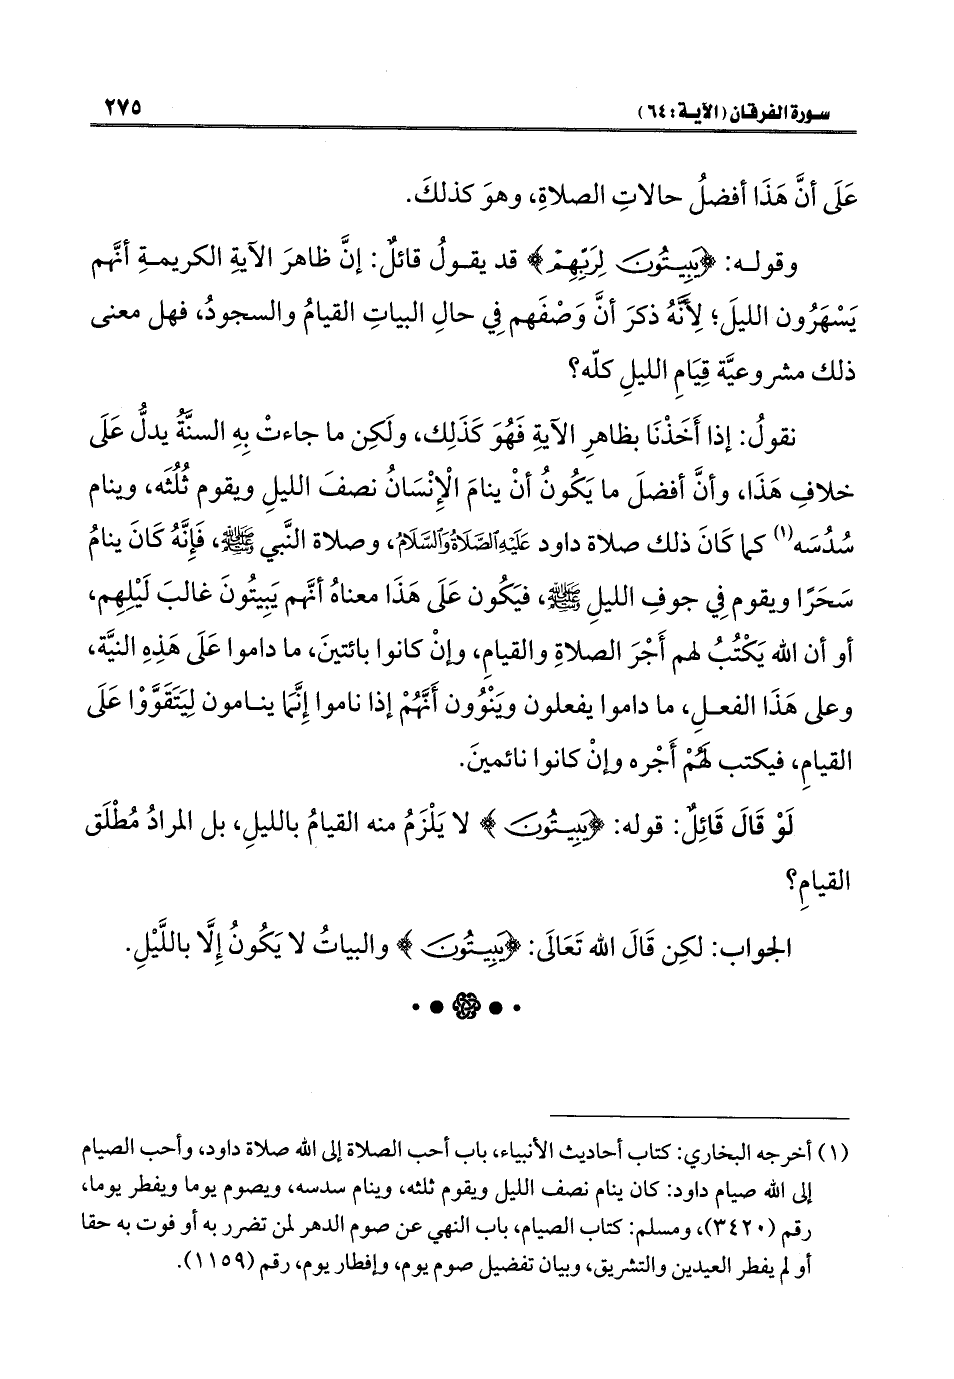 سورة الفرقان (الآية: ٦٤) ٢٧٥
عَلَى أنَّ هَذَا أفضلُ حالاتِ الصلاةِ، وهوَ كذلكَ.
وقولـه: ﴿يَبِيتُونَ لِرَبِّهِمْ﴾ قد يقـولُ قائلٌ: إنَّ ظاهرَ الآيةِ الكريمـةِ أنَّهم
يَسْهَرُون الليلَ؛ لِأَنَّهُ ذكرَ أنَّ وَصْفَهم فِي حالِ البياتِ القيامُ والسجودُ، فهل معنى
ذلك مشروعيَّة قِيَامِ الليلِ كلّه؟
نقولُ: إذا أَخَذْنَا بظاهرِ الآيةِ فَهُوَ كَذَلِك، ولَكِن ما جاءتْ بِهِ السنَّةُ يدلُّ عَلَى
خلافِ هَذَا، وأنَّ أفضلَ ما يَكُونُ أنْ ينامَ الْإِنْسَانُ نصفَ الليلِ ويقوم ثُلُثَه، وينام
سُدُسَه(١) كما كَانَ ذلك صلاة داود عَلَيْهِ الصَّلَاةُ وَالسَّلَامُ، وصلاة النَّبي ﷺ، فَإِنَّهُ كَانَ ينامُ
سَحَرًا ويقوم فِي جوفِ الليلِ ﷺ، فيَكُون عَلَى هَذَا معناهُ أنَّهم يَبِيتُونَ غالبَ لَيْلِهِم،
أو أن الله يَكْتُبُ لهم أَجْرَ الصلاةِ والقيامِ، وإنْ كانوا بائتينَ، ما داموا عَلَى هَذِهِ النيَّة،
وعلى هَذَا الفعـلِ، ما داموا يفعلون ويَنْوُون أَنَّهُمْ إذا ناموا إنَّما ينـامون لِيَتَقَوَّوْا عَلَى
القيامِ، فيكتب لَهُمْ أَجْره وإنْ كانوا نائمينَ.
لَوْ قَالَ قَائِلٌ: قوله: ﴿يَبِيتُونَ﴾ لا يَلْزَمُ منه القيامُ بالليلِ، بل المرادُ مُطْلَق
القيامِ؟
الجواب: لكِن قَالَ الله تَعَالَى: ﴿يَبِيتُونَ﴾ والبياتُ لا يَكُونُ إلَّا باللَّيْلِ.
(١) أخرجه البخاري: كتاب أحاديث الأنبياء، باب أحب الصلاة إلى الله صلاة داود، وأحب الصيام
إلى الله صيام داود: كان ينام نصف الليل ويقوم ثلثه، وينام سدسه، ويصوم يوما ويفطر يوما،
رقم (٣٤٢٠)، ومسلم: كتاب الصيام، باب النهي عن صوم الدهر لمن تضرر به أو فوت به حقا
أو لم يفطر العيدين والتشريق، وبيان تفضيل صوم يوم، وإفطار يوم، رقم (١١٥٩).